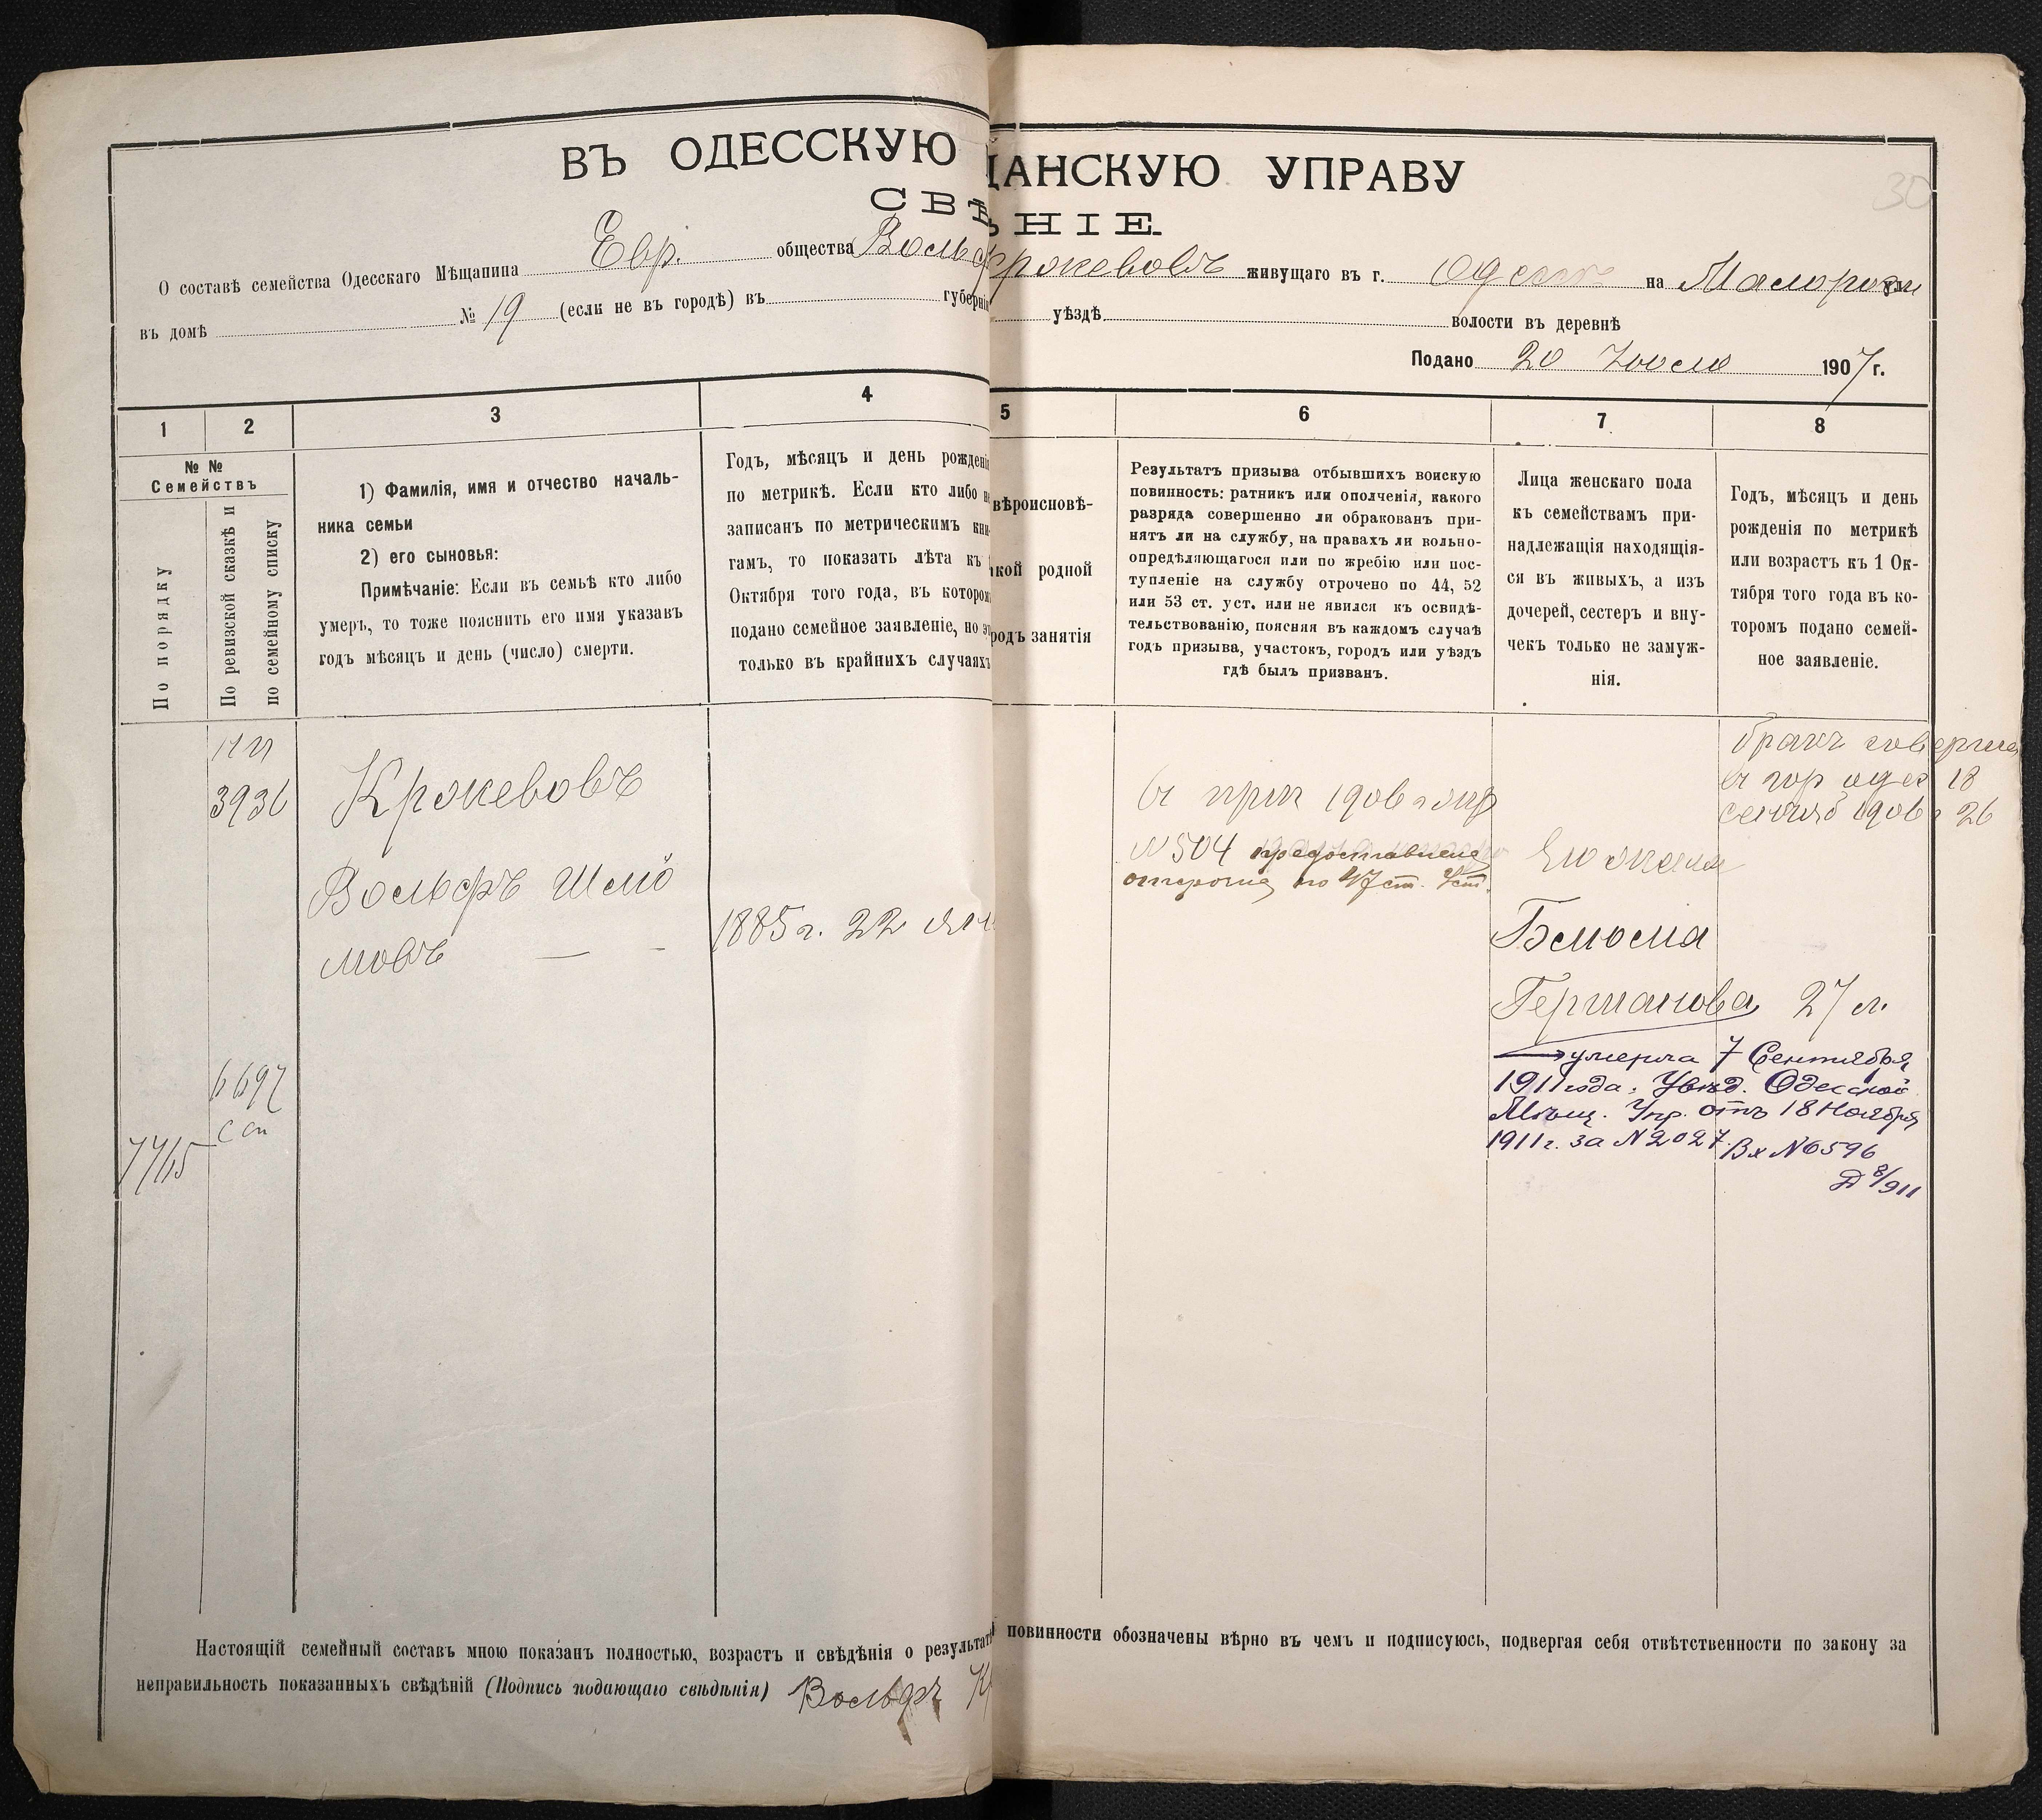 30
ВЪ ОДЕССКУЮ ЩАНСКУЮ УПРАВУ
СВѢ НІЕ.
О составѣ семейства Одесскаго Мѣщанина Евр. общества Вольфъ Крокевовъ живущаго въ г. Одессѣ на Малорос ул
въ домѣ № 19 (если не въ городѣ) въ губерніи уѣздѣ волости въ деревнѣ
Подано 20 Іюля 1907 г.
1 2 3 4 5 6 7 8
№ №
Семействъ
По порядку
По ревизской сказкѣ и
по семейному списку
1) Фамилія, имя и отчество началь-
ника семьи
2) его сыновья:
Примѣчаніе: Если въ семьѣ кто либо
умеръ, то тоже пояснить его имя указавъ
годъ мѣсяцъ и день (число) смерти.
Годъ, мѣсяцъ и день рожденія
по метрикѣ. Если кто либо не
записанъ по метрическимъ кни-
гамъ, то показать лѣта къ 1
Октября того года, въ которомъ
подано семейное заявленіе, но это
только въ крайнихъ случаяхъ
вѣроисновѣ-
кой родной
родъ занятія
Результатъ призыва отбывшихъ воискую
повинность: ратникъ или ополченія, какого
разряда совершенно ли обракованъ при-
нятъ ли на службу, на правахъ ли вольно-
опредѣляющагося или по жребію или пос-
тупленіе на службу отрочено по 44, 52
или 53 ст. уст. или не явился къ освидѣ-
тельствованію, поясняя въ каждомъ случаѣ
годъ призыва, участокъ, городъ или уѣздъ
гдѣ былъ призванъ.
Лица женскаго пола
къ семействамъ при-
надлежащія находящія-
ся въ живыхъ, а изъ
дочерей, сестеръ и вну-
чекъ только не замуж-
нія.
Годъ, мѣсяцъ и день
рожденія по метрикѣ
или возрастъ къ 1 Ок-
тября того года въ ко-
торомъ подано семей-
ное заявленіе.
3936
Крокевовъ
Вольфъ Шліо
мовъ — -
1885 г. 22 янв
6697
С сп
7765
къ приз 1906 г
№ 504 предоставлена
отсрочка по 47 ст. Уст.
бракъ соверше
въ гор одес 18
сентяб 1906 г 26
Его жена
Блюма
Германова 27 л.
умерла 7 Сентября
1911 года. Увѣд. Одесской
Мѣщ. Упр. отъ 18 Ноября
1911 г. за № 2027. Вх № 6596
Д 8/911
Настоящій семейный составъ мною показанъ полностью, возрастъ и свѣдѣнія о результатѣ повинности обозначены вѣрно въ чемъ и подписуюсь, подвергая себя отвѣтственности по закону за
неправильность показанныхъ свѣдѣній (Подпись подающаго свѣдѣнія) Вольфъ Кр